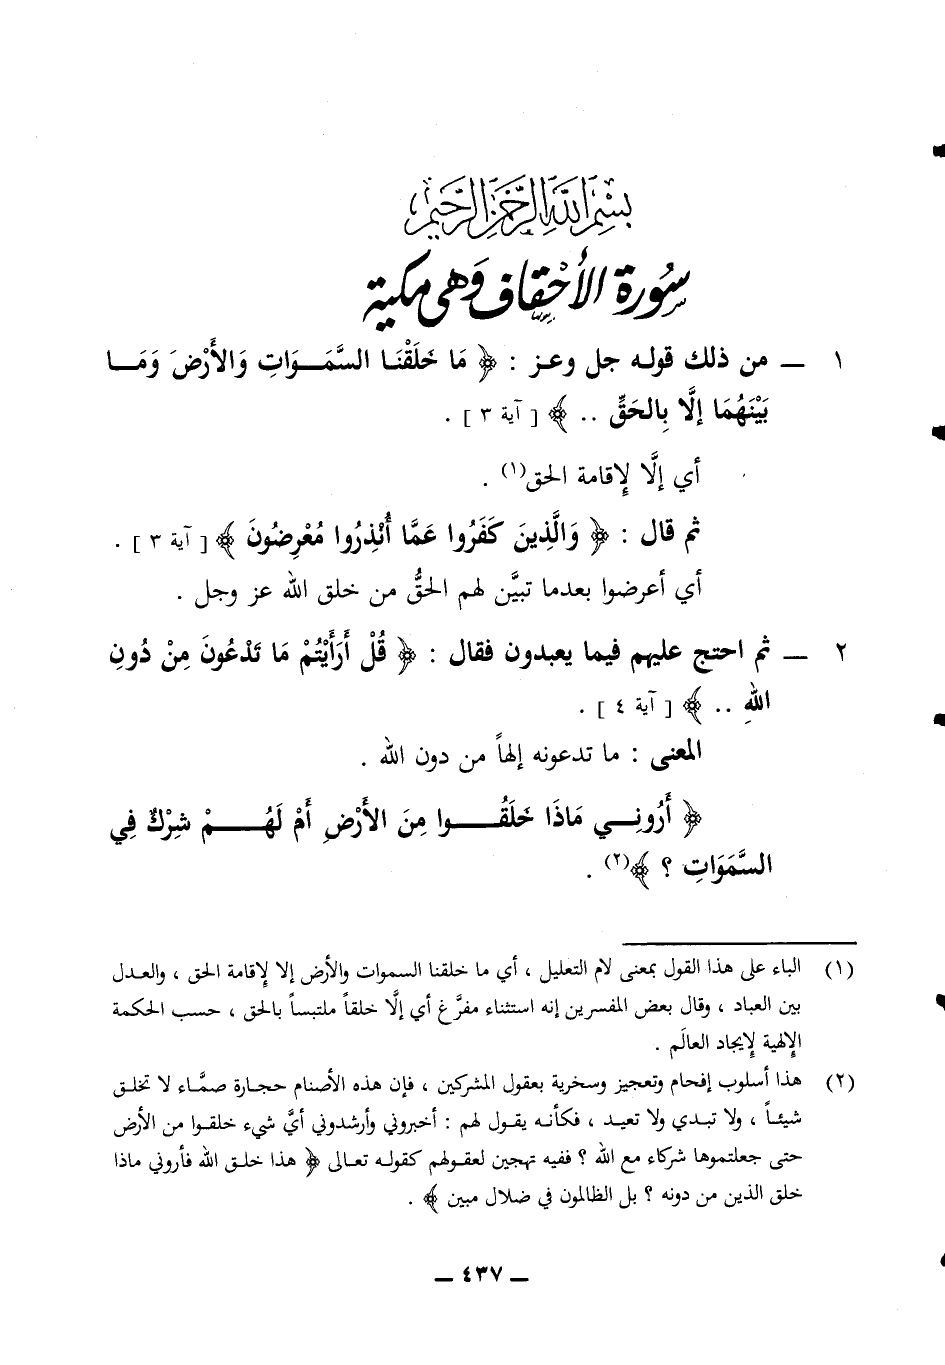 بسم الله الرحمن الرحيم
سُورة الأحْقاف وَهي مكية
١ — من ذلك قوله جل وعز : ﴿ مَا خَلَقْنَا السَّمَوَاتِ وَالأَرْضَ وَمَا
بَيْنَهُمَا إلَّا بِالحَقِّ .. ﴾ [ آية ٣ ] .
أي إلَّا لإقامة الحق(١) .
ثم قال : ﴿ وَالَّذِينَ كَفَرُوا عَمَّا أُنْذِرُوا مُعْرِضُونَ ﴾ [ آية ٣ ] .
أي أعرضوا بعدما تبيَّن لهم الحقُّ من خلق الله عز وجل .
٢ — ثم احتج عليهم فيما يعبدون فقال : ﴿ قُلْ أَرَأَيْتُمْ مَا تَدْعُونَ مِنْ دُونِ
اللهِ .. ﴾ [ آية ٤ ] .
المعنى : ما تدعونه إلهاً من دون الله .
﴿ أَرُونِي مَاذَا خَلَقُوا مِنَ الأَرْضِ أَمْ لَهُمْ شِرْكٌ فِي
السَّمَوَاتِ ؟ ﴾(٢) .
(١) الباء على هذا القول بمعنى لام التعليل ، أي ما خلقنا السموات والأرض إلا لإقامة الحق ، والعدل
بين العباد ، وقال بعض المفسرين إنه استثناء مفرَّغ أي إلَّا خلقاً ملتبساً بالحق ، حسب الحكمة
الإلهية لإيجاد العالَم .
(٢) هذا أسلوب إفحام وتعجيز وسخرية بعقول المشركين ، فإن هذه الأصنام حجارة صمَّاء لا تخلق
شيئاً ، ولا تبدي ولا تعيد ، فكأنه يقول لهم : أخبروني وأرشدوني أيَّ شيء خلقوا من الأرض
حتى جعلتموها شركاء مع الله ؟ ففيه تهجين لعقولهم كقوله تعالى ﴿ هذا خلق الله فأروني ماذا
خلق الذين من دونه ؟ بل الظالمون في ضلال مبين ﴾ .
— ٤٣٧ —